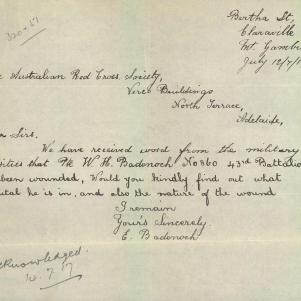 320-61
Bertha St,
Claraville
Mt. Gambie
July 12/7/1
Australian Red Cross Society,
Verco Buildings
North Terrace,
Adelaide,
Sirs.
We have received word from the military
ities that Pte W. H. Badenoch No 860 43rd Battalion
been wounded, Would you kindly find out what
ital he is in, and also the nature of the wound
I remain
Your's Sincerely
E. Badenoch
cknowledged.
16.7.17